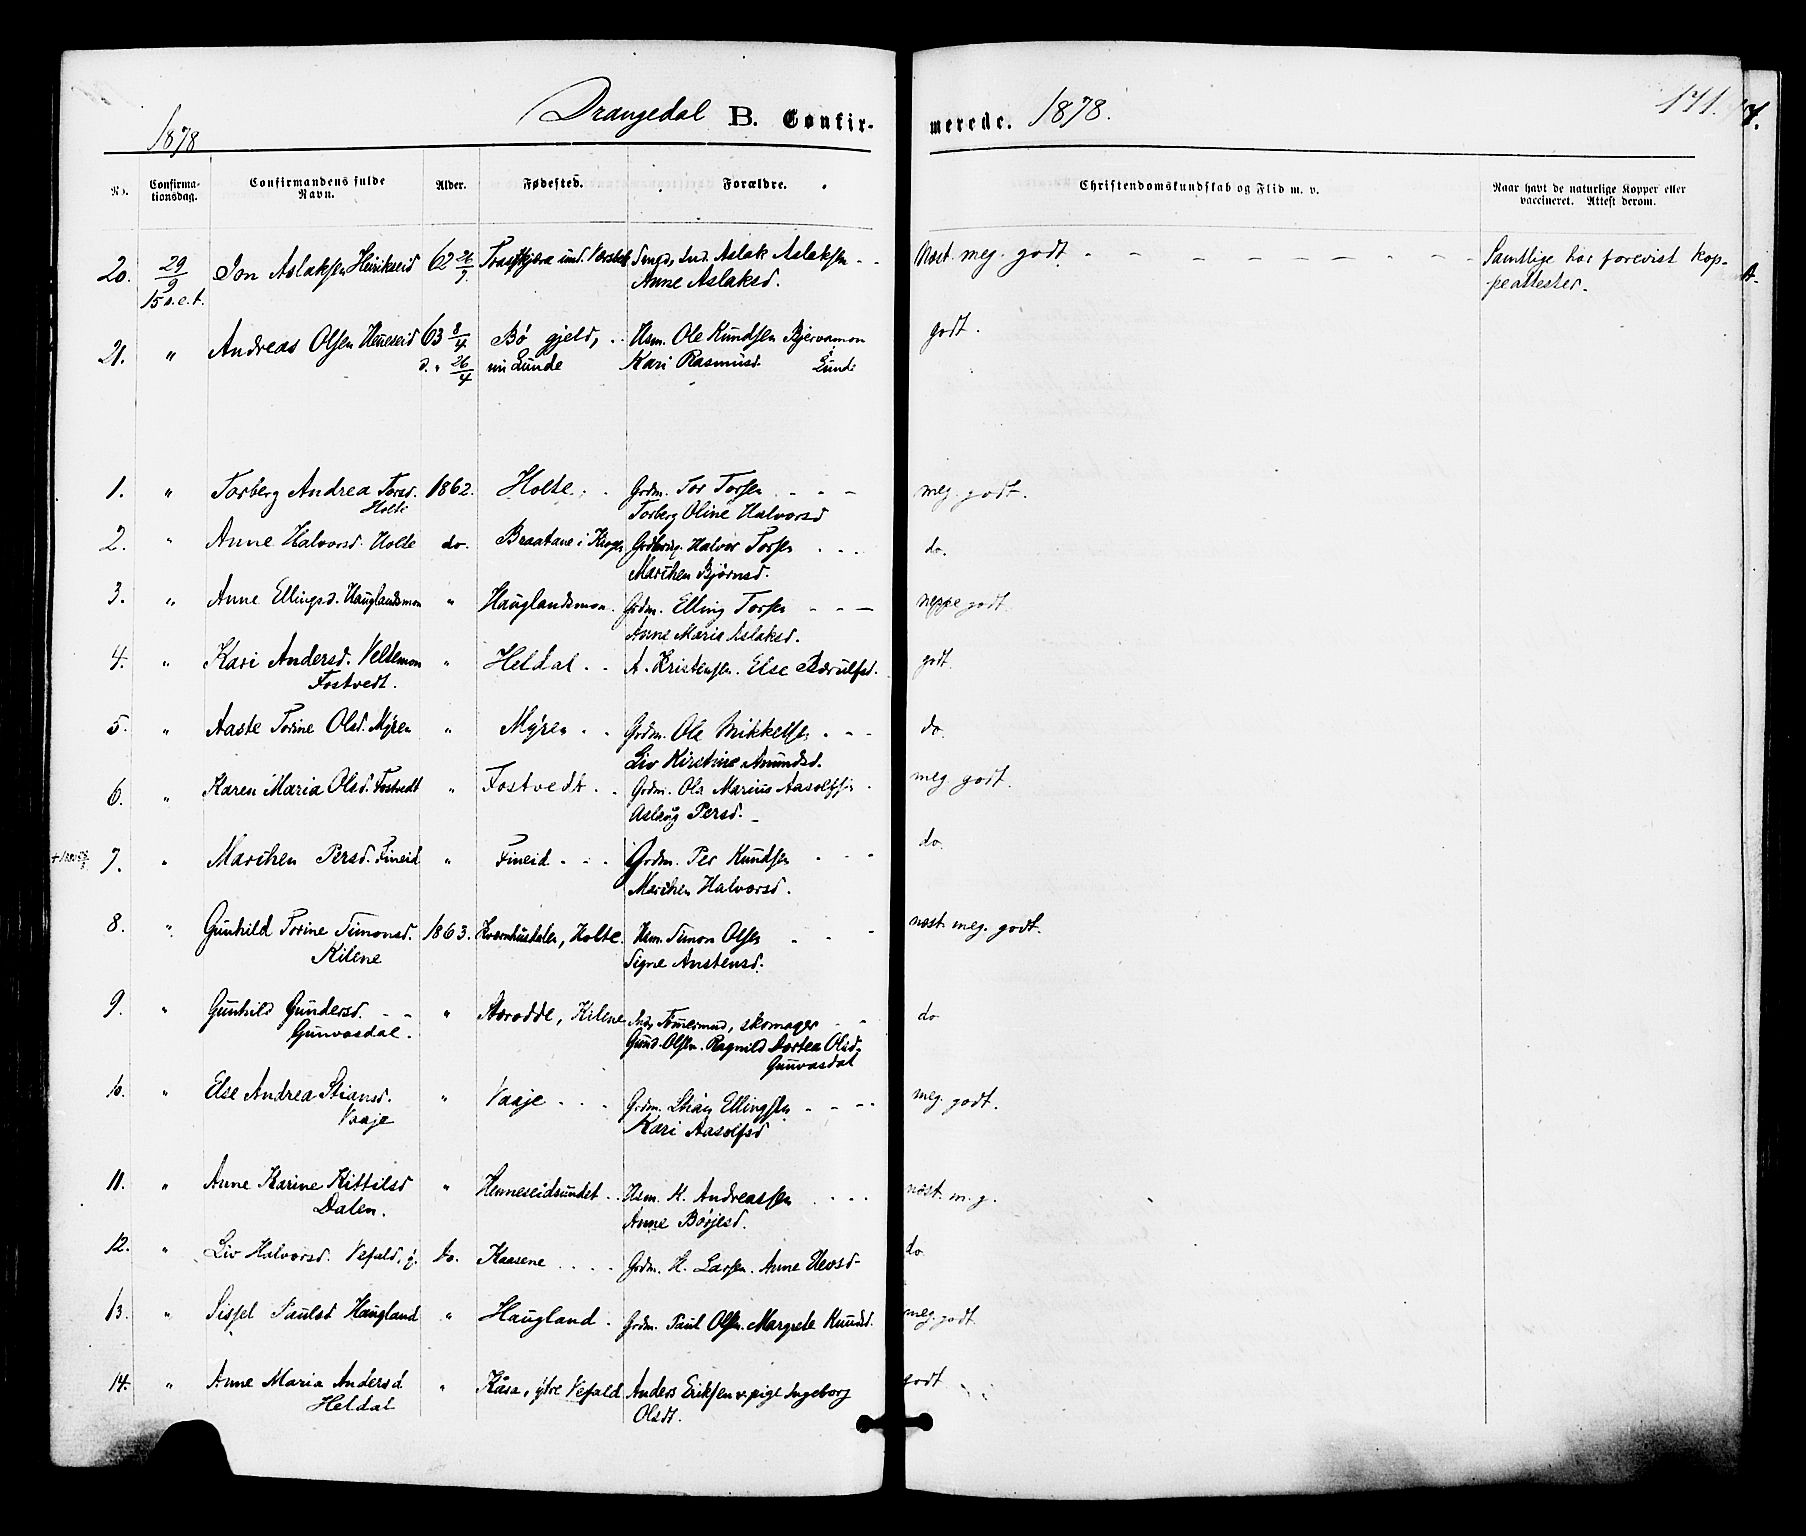 Drangedal B. Confir-
merede. 1878.
171.
1878
No.
Confirma-
tionsdag.
Confirmandens fulde
Navn.
Alder.
Fødested.
Forældre.
Christendomskundskab og Flid m. v.
Naar havt de naturlige Kopper eller
vaccineret. Attest derom.
20. 29/9 Jon Aslaksen Henrikseid 62 26/7 Aslak Aslaksen - - Næst. meg. godt - - - - - - - Samtlige har forevist kop-
15 s.e.t. Anne Aslaksd. peattester.
21. " Andreas Olsen Henneseid 63 8/4 Bø gjeld, Hsm. Ole Kundsen Bjervamon godt.
d. " 26/4 nu Lunde Kari Rasmusd. Lunde
1. " Torberg Andrea Torsd. 1862. Holte, Grdm. Tor Torsen - - - meg. godt.
Holte Torberg Oline Halvorsd
2. " Anne Halvorsd. Holte do. Braatane i Halvor Torsen - - - do.
Marthen Bjørnsd.
3. " Anne Ellingsd. Hauglandsmon " Hauglandsmon. Grdm. Elling Torsen - - - neppe godt.
Anne Maria Aslaksd.
4. " Kari Andersd. Veltemon " Heldal - - A. Kristensen. Else Bærulfsd. godt.
Fostvedt.
5. " Aaste Torine Olsd. Myren " Myren - - Grdm. Ole Mikkelsen - - - do.
Liv Kirstine Amundsd.
6. " Karen Maria Olsd. Fostvedt " Fostvedt - - Grdm. Ole Marius Aasolfsen - meg. godt.
Aslaug Persd. -
7. " Marthen Persd. Fineid " Fineid - - - Grdm. Per Kundsen - - - do.
Marthen Halvorsd.
8. " Gunhild Torine Simonsd. 1863. Kvernhusdalen, Holte. Hsm. Simon Olsen - - - næst. meg. godt.
Kilene Signe Anstensd.
9. " Gunhild Gundersd. - - " Aarodde, Kilene skomager - - do
Gunvasdal. Gund. Olsen. Ragnild Dortea Olsd.
Gunvasdal
10. " Else Andrea Stiansd. " Vaaje - - - Grdm. Stian Ellingsen - - - - meg. godt.
Vaaje Kari Aasolfsd
11. " Anne Karine Kittilsd " Henneseidsundet - - Hsm. K. Andreassen - - - - næst. m. g.
Dalen. Anne Børjesd.
12. " Liv Halvorsd. Vefald, y. do. Kaasene - - - - Grdm. H. Larsen. Anne do
13. " Sissel Paulsd Haugland " Haugland - Grdm. Paul Olsen. Margrete Knudsd. meg. godt.
14. " Anne Maria Andersd " Kåsa, ytre Vefald Anders Eriksen v. pige Ingeborg godt
Heldal Olsdt.